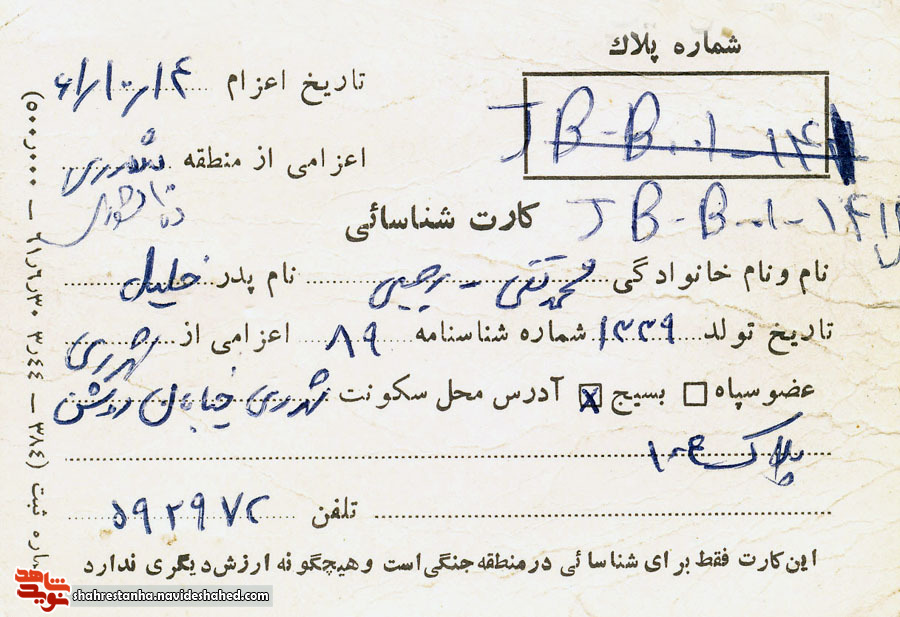 شماره پلاك
JB-B001-141
تاریخ اعزام ۶۱/۱۰/۱۴
اعزامی از منطقه شهرری
کارت شناسائی
JB-B-01-141
نام و نام خانوادگی محمد تقی - رجبی نام پدر خلیل
تاریخ تولد ۱۳۳۹ شماره شناسنامه ۸۹ اعزامی از شهرری
عضو سپاه بسیج X آدرس محل سکونت شهرری خیابان
پلاک ۱۰۴
تلفن ۵۹۲۹۷۲
این کارت فقط برای شناسائی در منطقه جنگی است و هیچگونه ارزش دیگری ندارد
ثبت (۳۸٤ — ۳ر٤٤ ۲۱ر۶ر۳۰ — ۵۰۰ر۰۰۰)
شاهد
نوید
shahrestanha.navideshahed.com